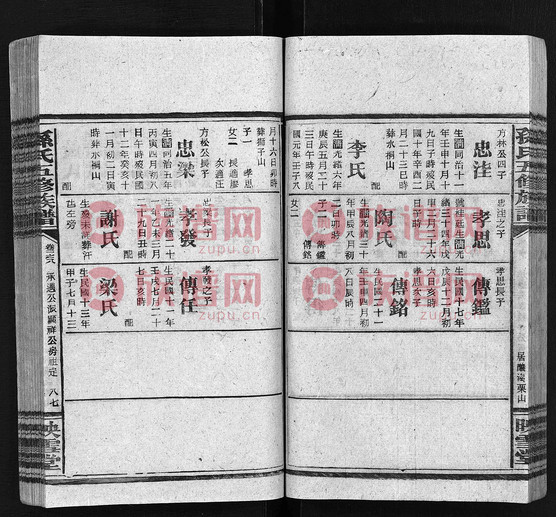 孫氏五修族譜
居釀溪栗山
映雪堂
方林公四子
忠洼
生清同治十一
年壬申十月十
九日子時歿民
國十年辛酉二
月二十三巳時
李氏
配
生清光緒六年
庚辰五月二十
三日午時歿民
國元年壬子八
忠洼之子
孝思
陶氏
配
子一
傳鑑
女一
傳銘
孝思長子
傳鑑
生民國十七年
戊辰十二月初
六日亥時
孝思次女
傳銘
生民國二十一
年壬申四月初
八日辰時
月十六日丑時
葬獅子山
子一
孝思
女二
長適廖
次適汪
方松公長子
忠梁
生清同治五年
丙寅四月初八
日午時歿民國
十二年癸亥十
一月初二日寅
時葬水桐山
配
忠梁之子
孝發
生清光緒二十
二十九日丑時
謝氏
配
生歿未詳葬汗
孝發之子
傳任
生民國十一年
壬戌七月二十
七日亥時
梁氏
配
生民國十三年
甲子七月十三
孫氏五修族譜
八七
映雪堂
族譜网
zupu.cn
族譜网
zupu.cn
族譜网
zupu.cn
族譜网
zupu.cn